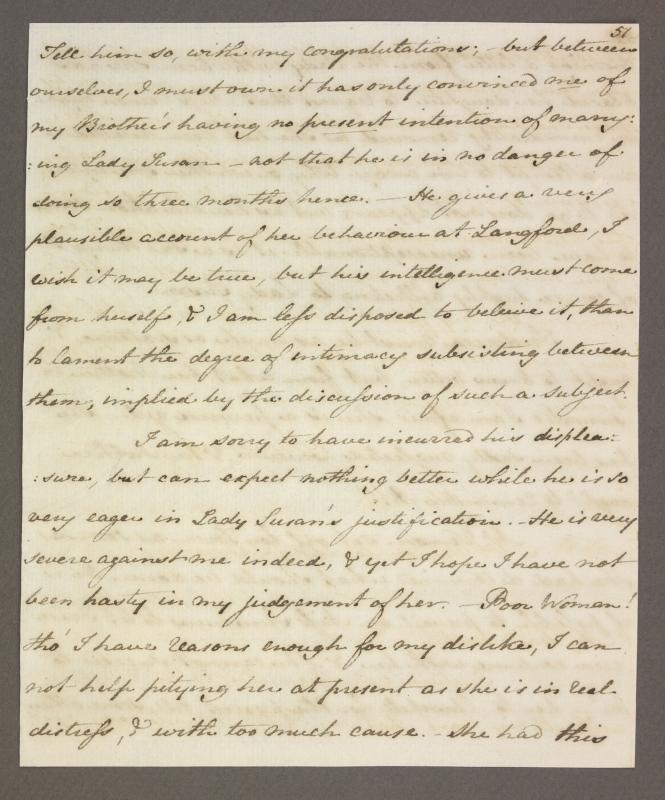 51
Tell him so, with my congratulations; – but between
ourselves, I must own it has only convinced me of
my Brother's having no present intention of marry:
:ing Lady Susan – not that he is in no danger of
doing so three months hence. – He gives a very
plausible account of her behaviour at Langford, I
wish it may be true, but his intelligence must come
from herself, & I am less disposed to beleive it, than
to lament the degree of intimacy subsisting between
them, implied by the discussion of such a subject.
I am sorry to have incurred his displea:
:sure, but can expect nothing better while he is so
very eager in Lady Susan's justification. – He is very
severe against me indeed, & yet I hope I have not
been hasty in my judgement of her. – Poor Woman!
tho' I have reasons enough for my dislike, I can
not help pitying her at present as she is in real
distress, & with too much cause. – She had this